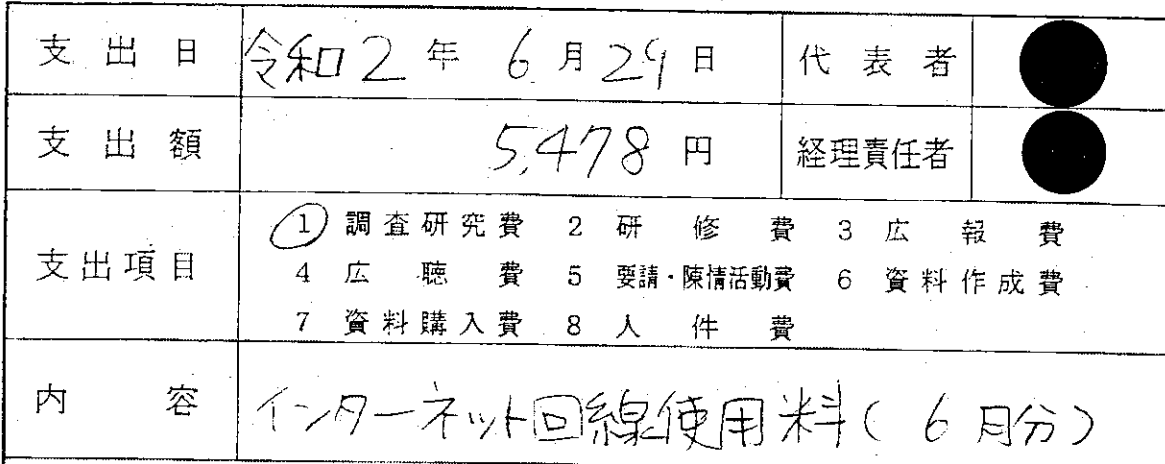 支出日 令和2年6月29日 代表者
支出額 5,478円 経理責任者
支出項目 ① 調査研究費 2 研修費 3 広報費
4 広聴費 5 要請・陳情活動費 6 資料作成費
7 資料購入費 8 人件費
内容 インターネット回線使用料(6月分)